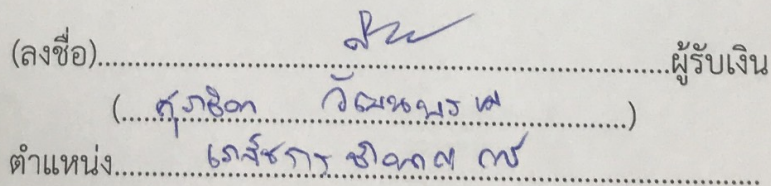 (ลงชื่อ)..........ผู้รับเงิน
(สุภธิดา วัฒนพรหม)
ตำแหน่ง เภสัชกรชำนาญการ